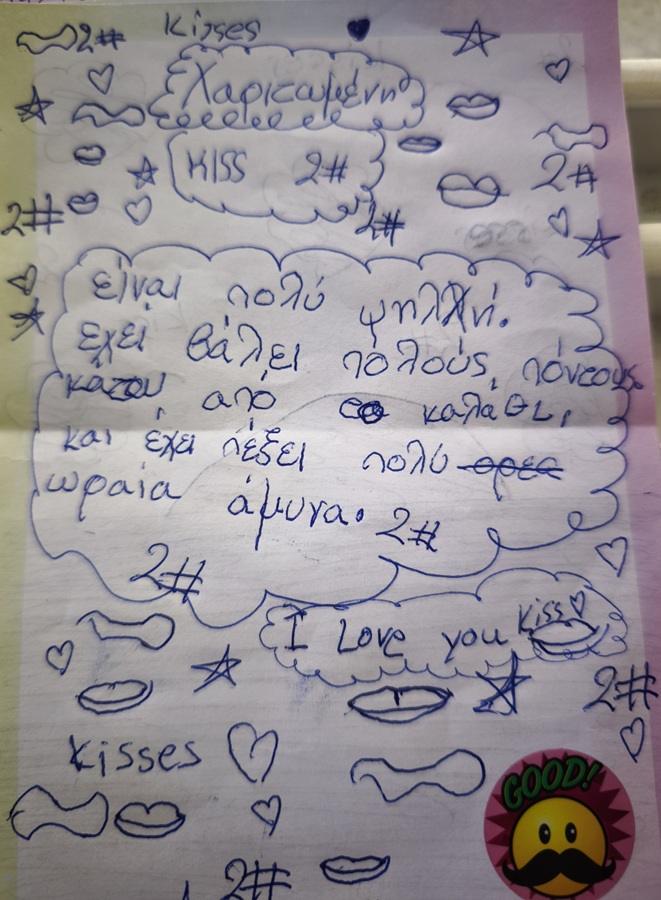 2# Kisses
Χαριτωμένη
KISS 2#
2#
2#
2#
είναι πολύ ψηλή.
εχει βάλει πολούς πόντους
κάτου από το καλαθι,
και έχει πέξει πολύ ορεα
ωραία άμυνα. 2#
2#
I Love you Kiss
2#
Kisses
GOOD!
2#